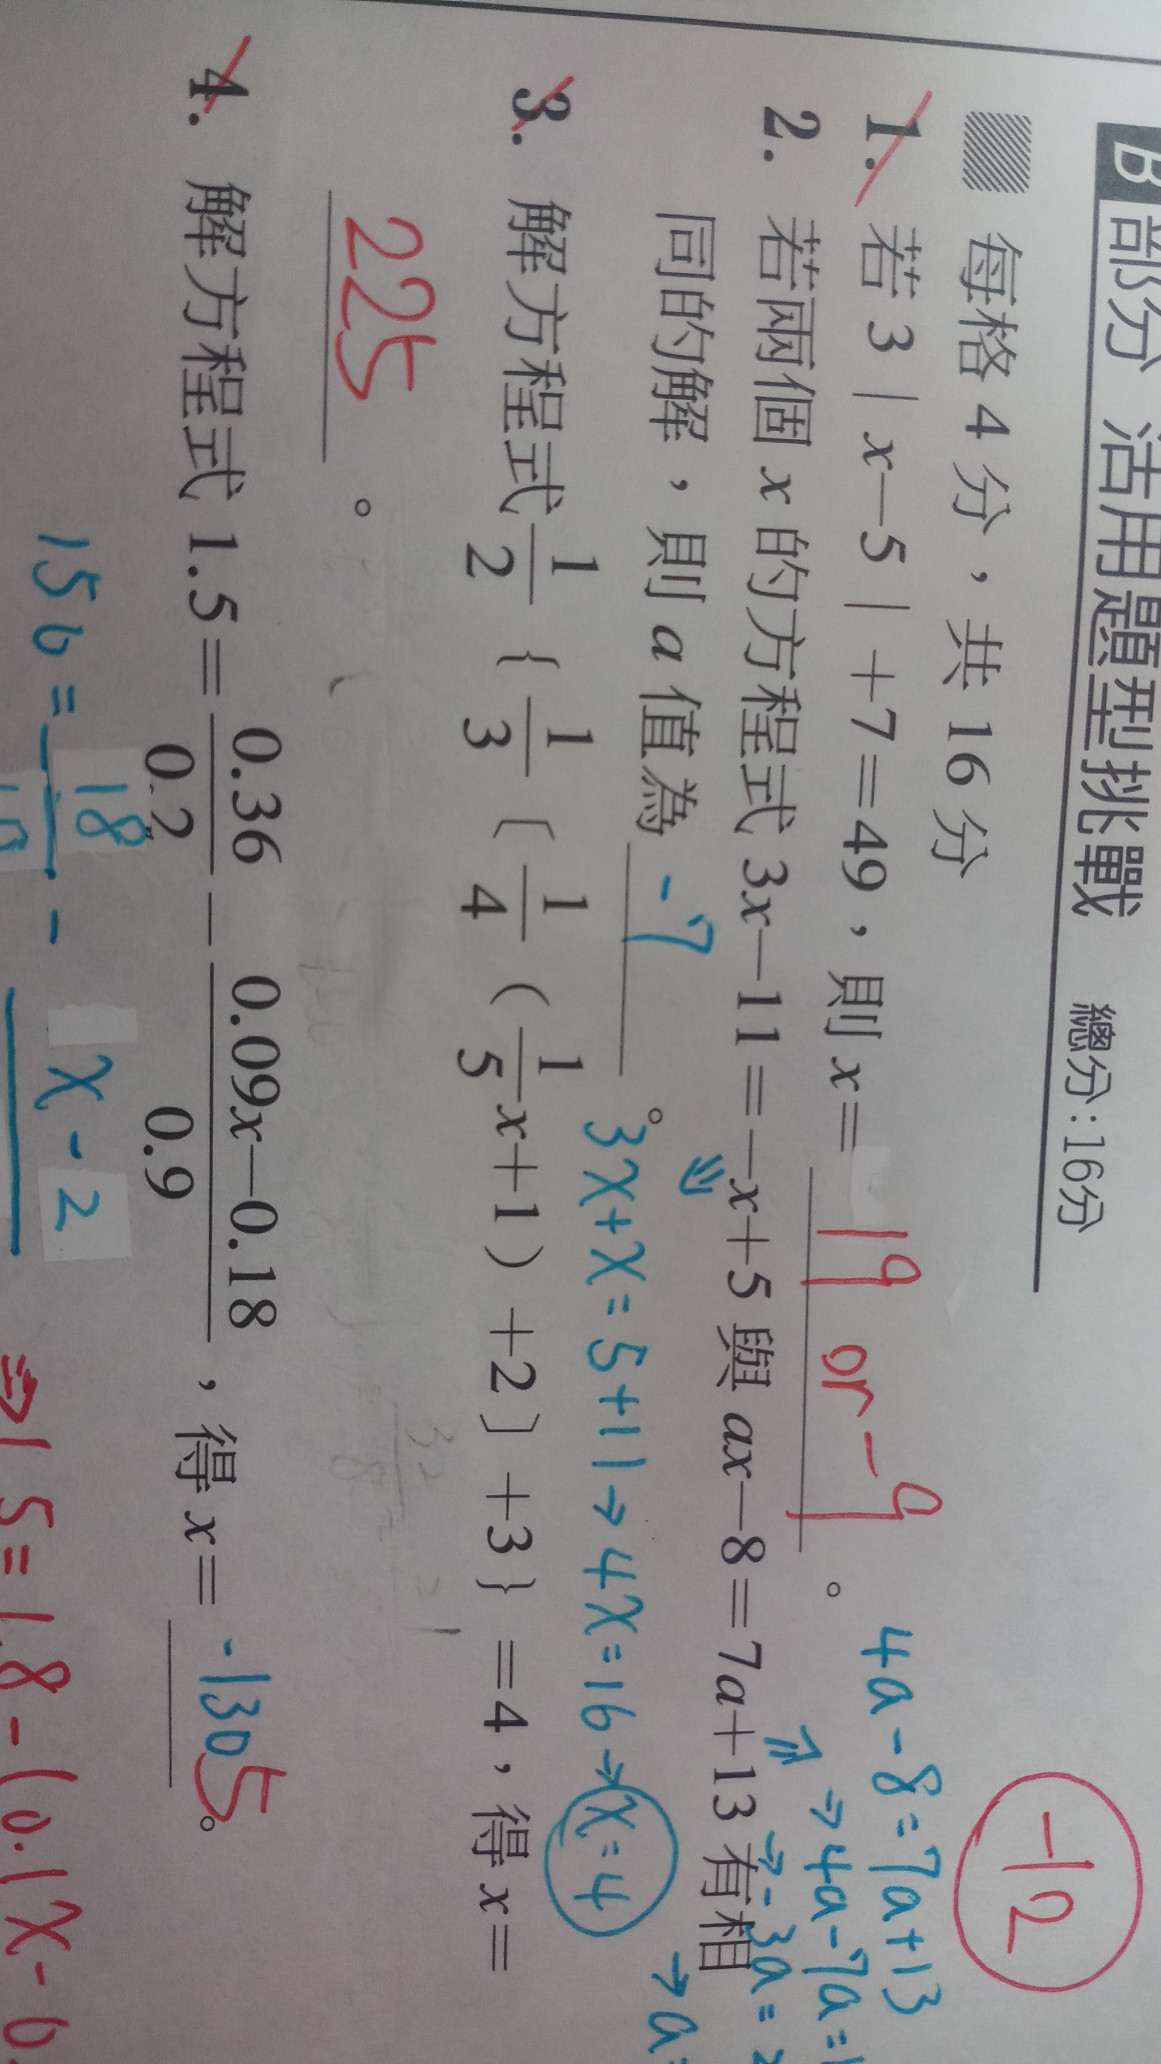 B部分 活用題型挑戰 總分:16分
每格4分，共16分
-12
1. 若3|x-5|+7=49，則x= 19 or -9 。
4a-8=7a+13
→4a-7a=
→-3a=
→a=
2. 若兩個x的方程式3x-11=-x+5與ax-8=7a+13有相
同的解，則a值為 -7 。
3x+x=5+11→4x=16→x=4
3. 解方程式 1/2 { 1/3 〔 1/4 ( 1/5 x+1 ) +2 〕 +3 } =4，得x=
225 。
4. 解方程式1.5= 0.36/0.2 - 0.09x-0.18/0.9 ，得x= -130 5 。
18 x-2
⇒1.5=1.8-(0.1x-0.